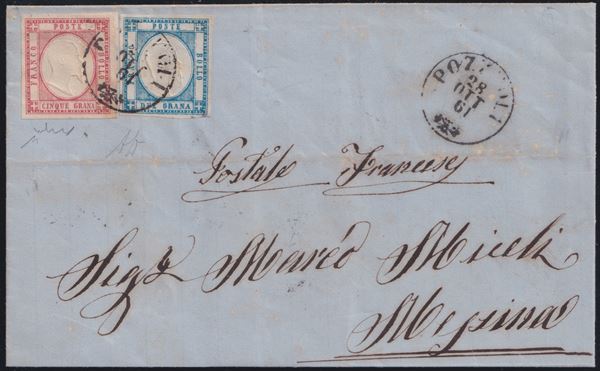 POSTE
FRANCO
BOLLO
CINQUE GRANA
POSTE
BOLLO
DUE GRANA
POZZUOLI
28
OTT
61
Postale Francese
Sig.r Marco Miceli
Messina